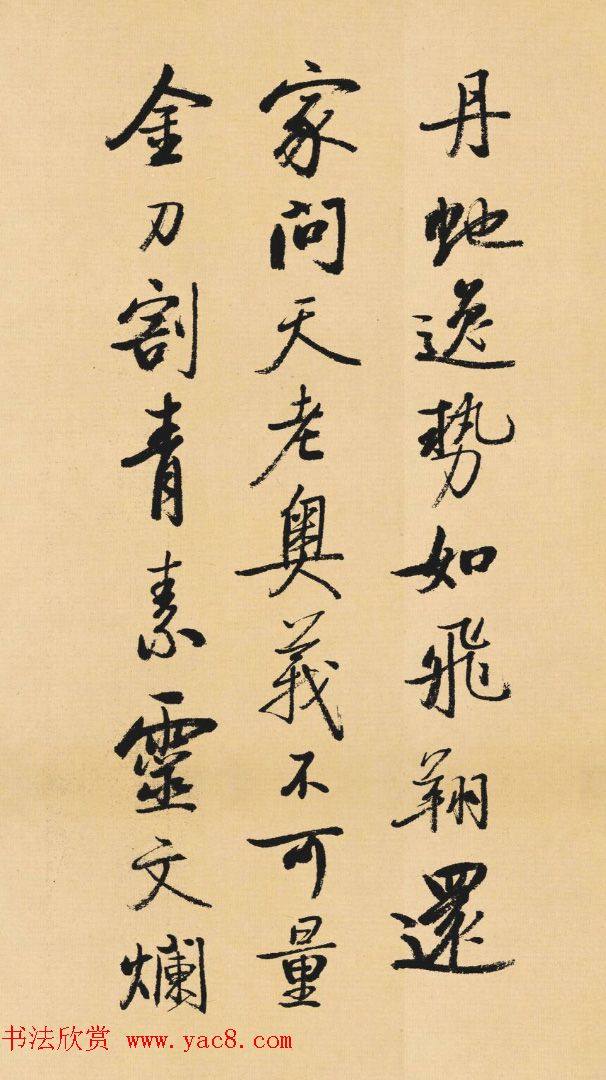 丹虵逸勢如飛翔還
家問天老奧義不可量
金刀割青素靈文爛
书法欣赏 www.yac8.com